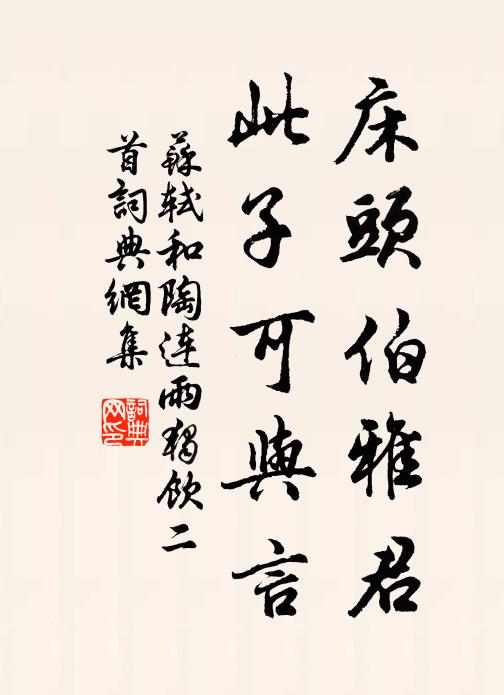 床頭伯雅君
此子可與言
蘇軾和陶連雨獨飲二
首詞典網集
詞典
网印